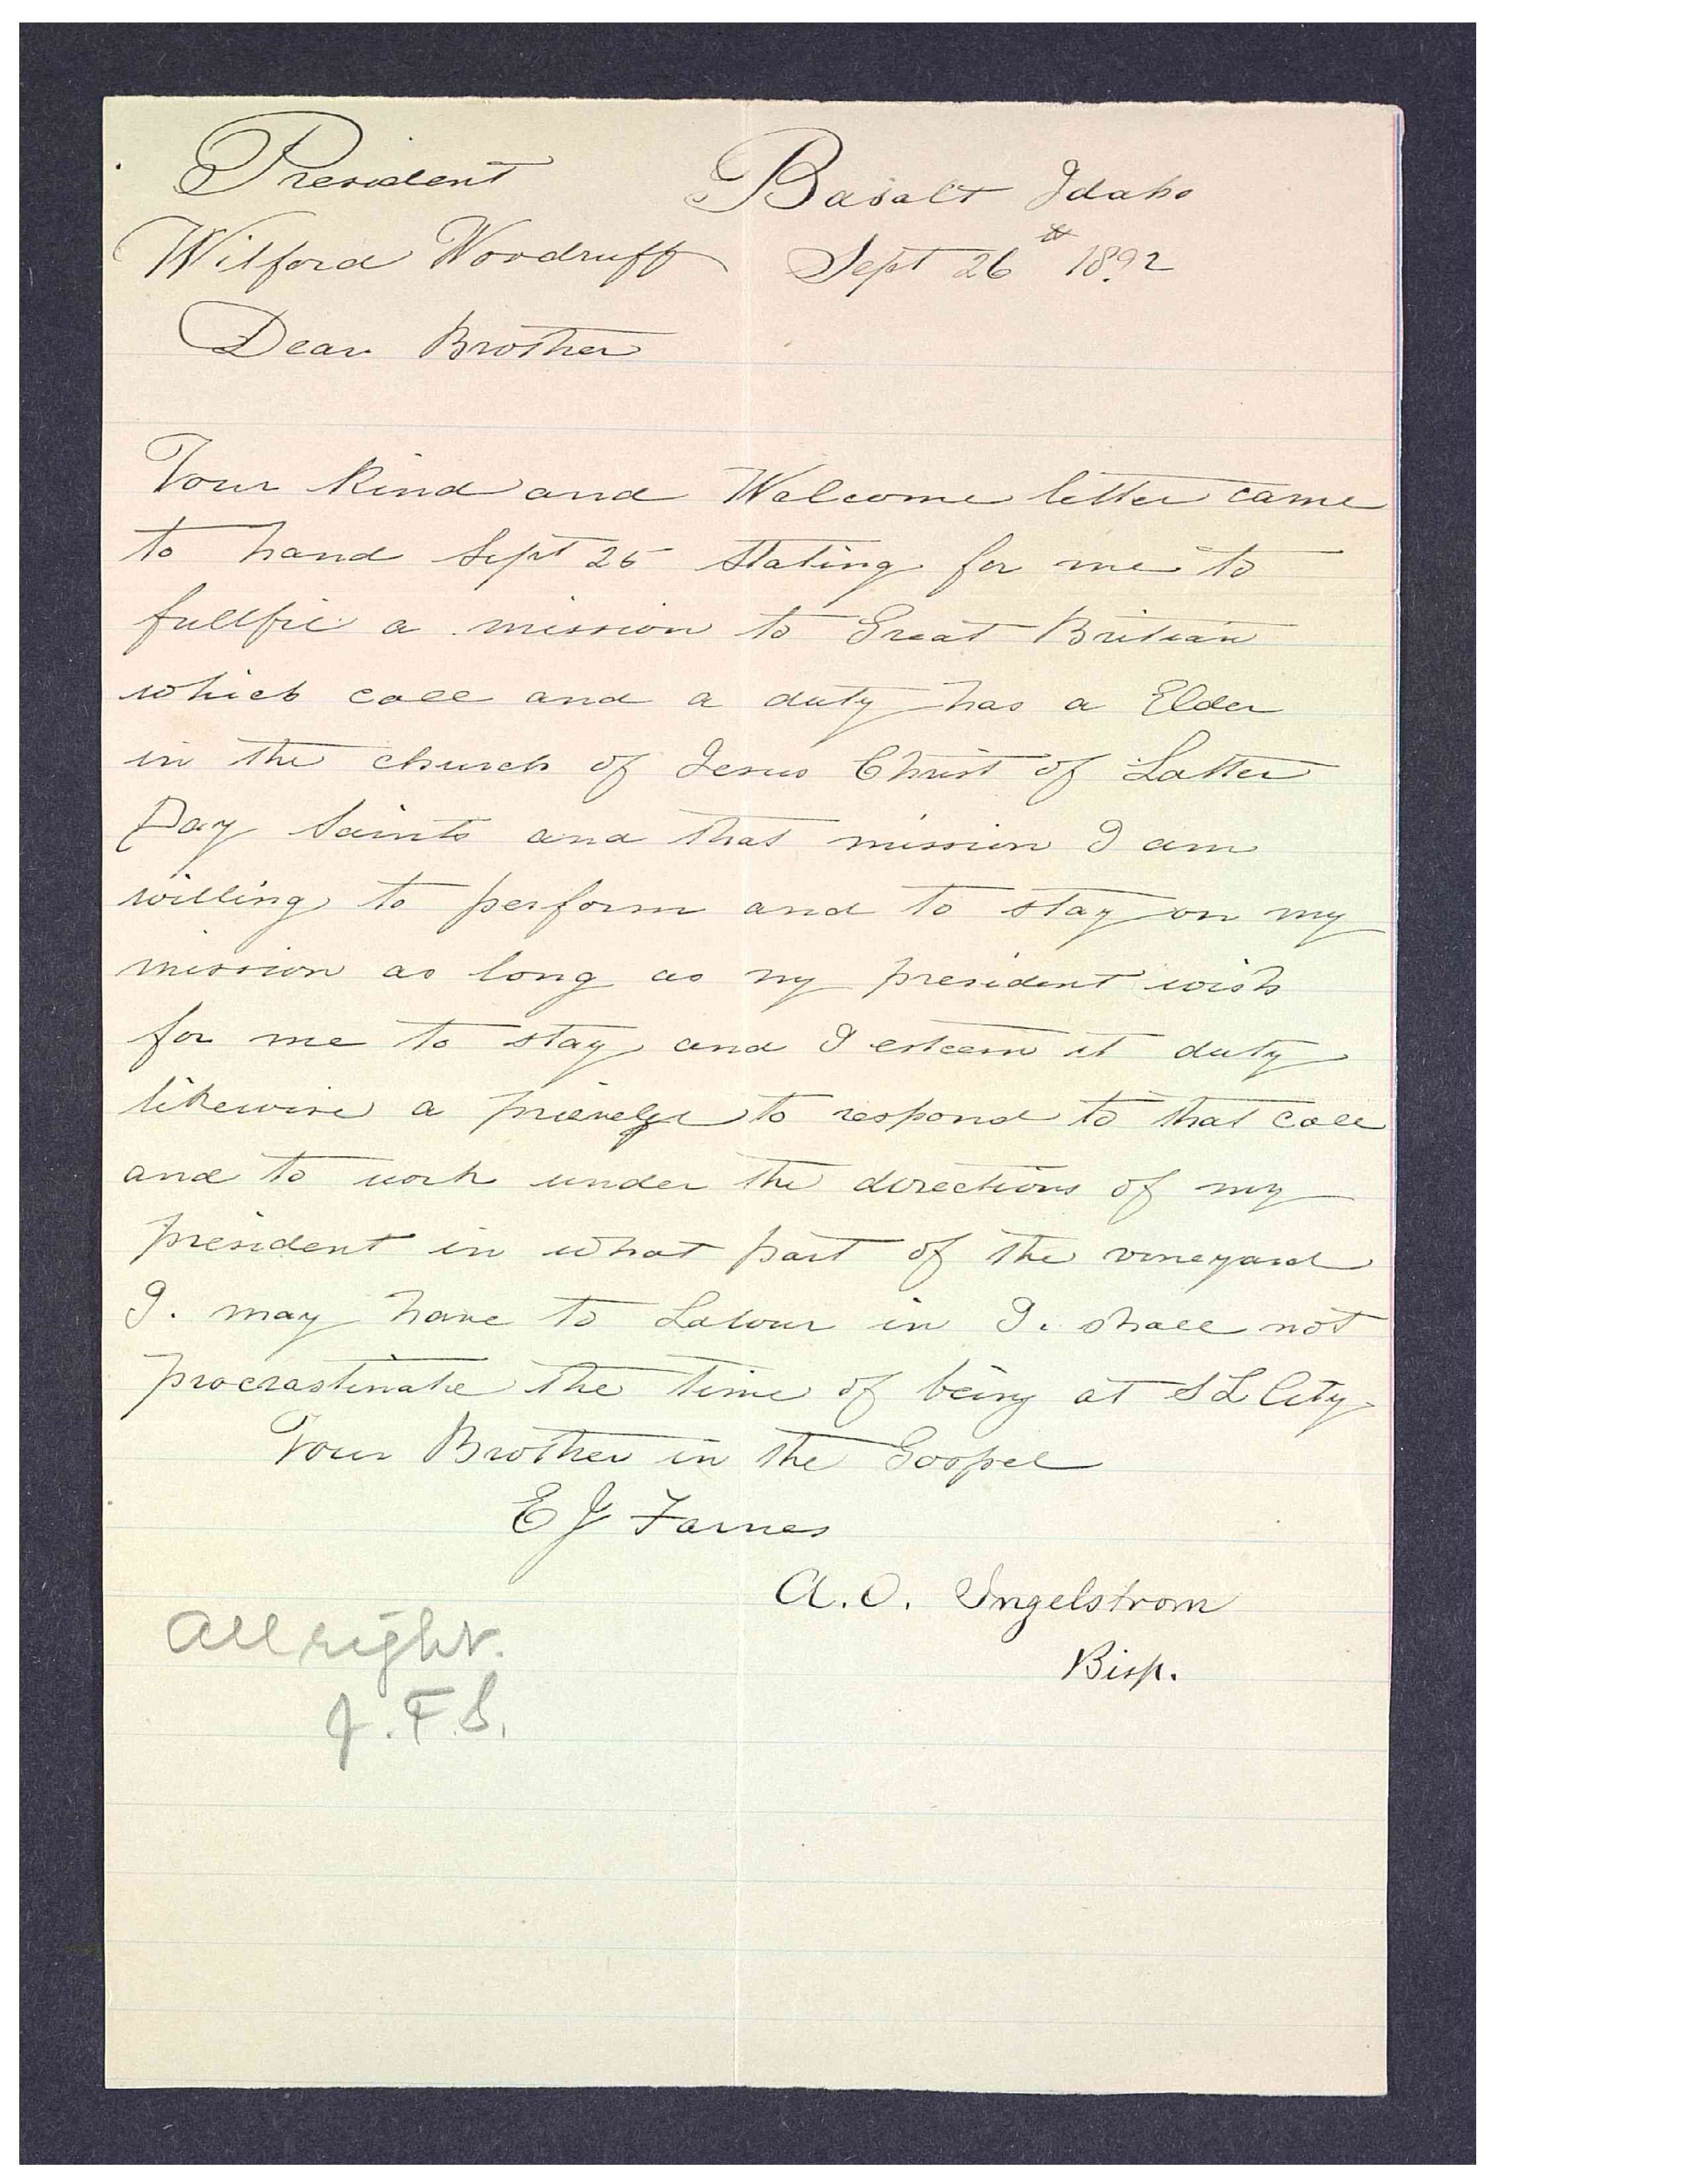 President Basalt Idaho
Wilford Woodruff Sept 26th 1892
Dear Brother
Your kind and Welcome letter came
to hand Sept 25 stating for me to
fullfil a mission to Great Britian
which call and a duty has a Elder
in the church of Jesus Christ of Latter
Day Saints and that mission I am
willing to perform and to stay on my
mission as long as my president wish
for me to stay and I esteem it duty
likewise a to respond to that call
and to work under the directions of my
president in what part of the vineyard
I. may have to Labour in I. shall not
procrastinate the time of being at S L City
Your Brother in the Gospel
E J Farnes
A. O. Ingelstrom
Bisp.
All right.
J. F. S.